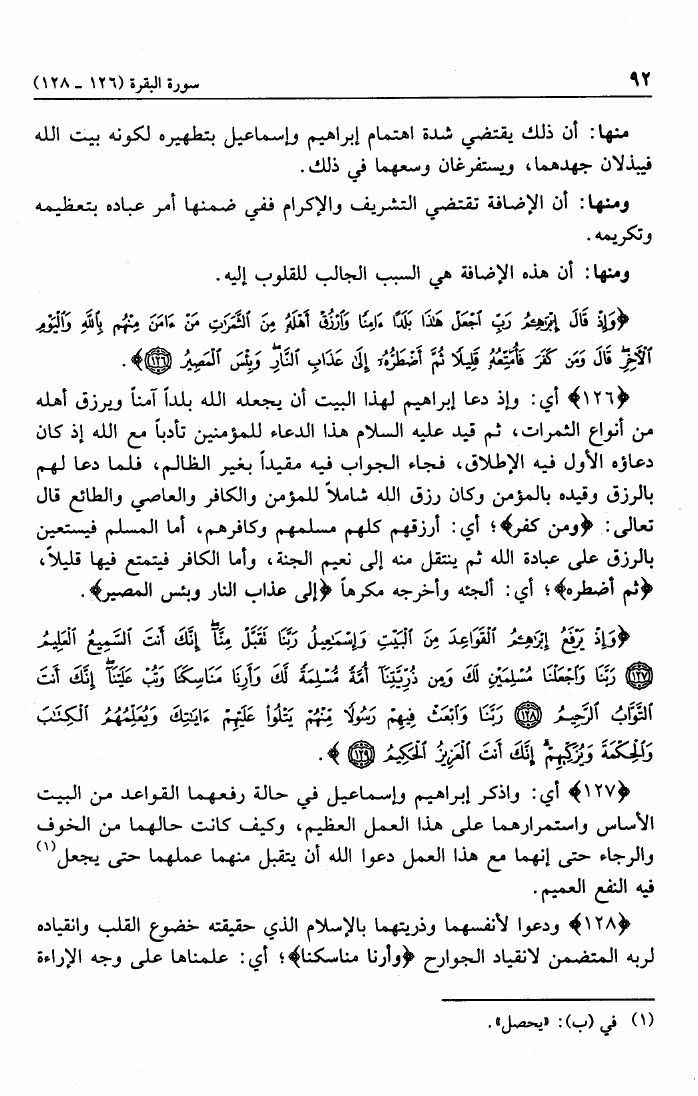 ٩٢ سورة البقرة (١٢٦ ـ ١٢٨)
منها: أن ذلك يقتضي شدة اهتمام إبراهيم وإسماعيل بتطهيره لكونه بيت الله
فيبذلان جهدهما، ويستفرغان وسعهما في ذلك.
ومنها: أن الإضافة تقتضي التشريف والإكرام ففي ضمنها أمر عباده بتعظيمه
وتكريمه.
ومنها: أن هذه الإضافة هي السبب الجالب للقلوب إليه.
﴿وَإِذْ قَالَ إِبْرَٰهِـۧمُ رَبِّ ٱجْعَلْ هَٰذَا بَلَدًا ءَامِنًا وَٱرْزُقْ أَهْلَهُۥ مِنَ ٱلثَّمَرَٰتِ مَنْ ءَامَنَ مِنْهُم بِٱللَّهِ وَٱلْيَوْمِ
ٱلْـَٔاخِرِۖ قَالَ وَمَن كَفَرَ فَأُمَتِّعُهُۥ قَلِيلًا ثُمَّ أَضْطَرُّهُۥٓ إِلَىٰ عَذَابِ ٱلنَّارِۖ وَبِئْسَ ٱلْمَصِيرُ ١٢٦﴾.
﴿١٢٦﴾ أي: وإذ دعا إبراهيم لهذا البيت أن يجعله الله بلداً آمناً ويرزق أهله
من أنواع الثمرات، ثم قيد عليه السلام هذا الدعاء للمؤمنين تأدباً مع الله إذ كان
دعاؤه الأول فيه الإطلاق، فجاء الجواب فيه مقيداً بغير الظالم، فلما دعا لهم
بالرزق وقيده بالمؤمن وكان رزق الله شاملاً للمؤمن والكافر والعاصي والطائع قال
تعالى: ﴿ومن كفر﴾؛ أي: أرزقهم كلهم مسلمهم وكافرهم، أما المسلم فيستعين
بالرزق على عبادة الله ثم ينتقل منه إلى نعيم الجنة، وأما الكافر فيتمتع فيها قليلاً،
﴿ثم أضطره﴾؛ أي: ألجئه وأخرجه مكرهاً ﴿إلى عذاب النار وبئس المصير﴾.
﴿وَإِذْ يَرْفَعُ إِبْرَٰهِـۧمُ ٱلْقَوَاعِدَ مِنَ ٱلْبَيْتِ وَإِسْمَٰعِيلُ رَبَّنَا تَقَبَّلْ مِنَّآۖ إِنَّكَ أَنتَ ٱلسَّمِيعُ ٱلْعَلِيمُ
١٢٧ رَبَّنَا وَٱجْعَلْنَا مُسْلِمَيْنِ لَكَ وَمِن ذُرِّيَّتِنَآ أُمَّةً مُّسْلِمَةً لَّكَ وَأَرِنَا مَنَاسِكَنَا وَتُبْ عَلَيْنَآۖ إِنَّكَ أَنتَ
ٱلتَّوَّابُ ٱلرَّحِيمُ ١٢٨ رَبَّنَا وَٱبْعَثْ فِيهِمْ رَسُولًا مِّنْهُمْ يَتْلُوا۟ عَلَيْهِمْ ءَايَٰتِكَ وَيُعَلِّمُهُمُ ٱلْكِتَٰبَ
وَٱلْحِكْمَةَ وَيُزَكِّيهِمْۚ إِنَّكَ أَنتَ ٱلْعَزِيزُ ٱلْحَكِيمُ ١٢٩﴾.
﴿١٢٧﴾ أي: واذكر إبراهيم وإسماعيل في حالة رفعهما القواعد من البيت
الأساس واستمرارهما على هذا العمل العظيم، وكيف كانت حالهما من الخوف
والرجاء حتى إنهما مع هذا العمل دعوا الله أن يتقبل منهما عملهما حتى يجعل(١)
فيه النفع العميم.
﴿١٢٨﴾ ودعوا لأنفسهما وذريتهما بالإسلام الذي حقيقته خضوع القلب وانقياده
لربه المتضمن لانقياد الجوارح ﴿وأرنا مناسكنا﴾؛ أي: علمناها على وجه الإراءة
(١) في (ب): «يحصل».